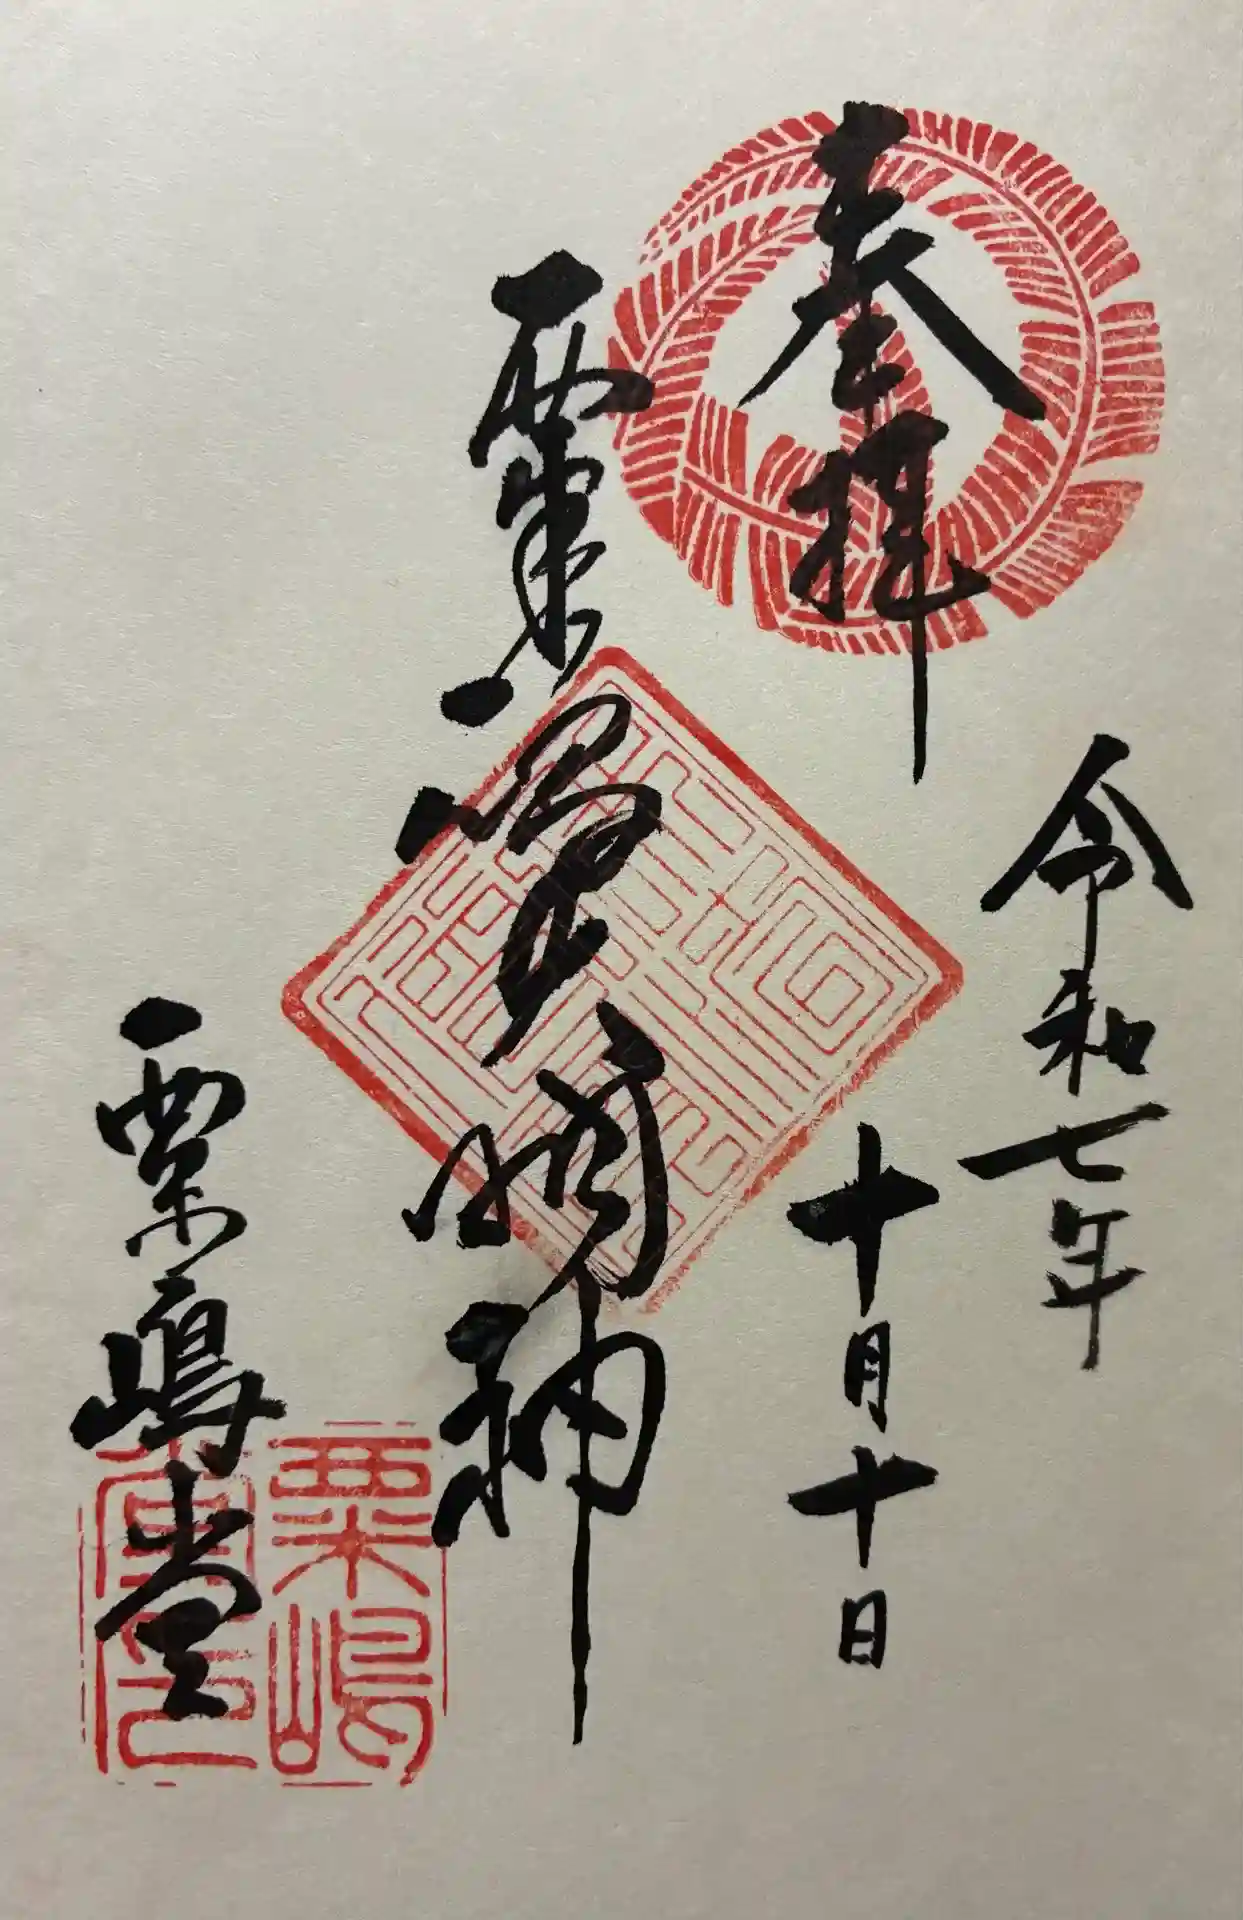 奉拝
令和七年
十月十日
粟嶋明神
粟嶋堂
粟嶋
堂印